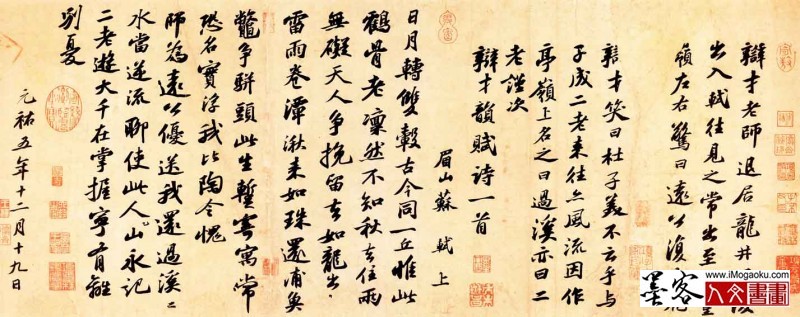 辯才老師退居龍井
出入軾往見之常出至
嶺左右驚曰遠公復
辯才笑曰杜子美不云乎與
子成二老来往亦風流因作
亭嶺上名之曰過溪亦曰二
老謹次
辯才韻賦詩一首
眉山蘇軾上
日月轉雙轂古今同一丘惟此
鶴骨老凜然不知秋去住兩
無礙天人爭挽留去如龍出
雷雨卷潭湫来如珠還浦魚
鼈爭駢頭此生暫寄寓常
恐名實浮我比陶令愧
師為遠公優送我還過溪〻
水當逆流聊使此人山永記
二老遊大千在掌握寧有離
別憂
元祐五年十二月十九日
墨客
www.iMogaoku.com
人文書畫